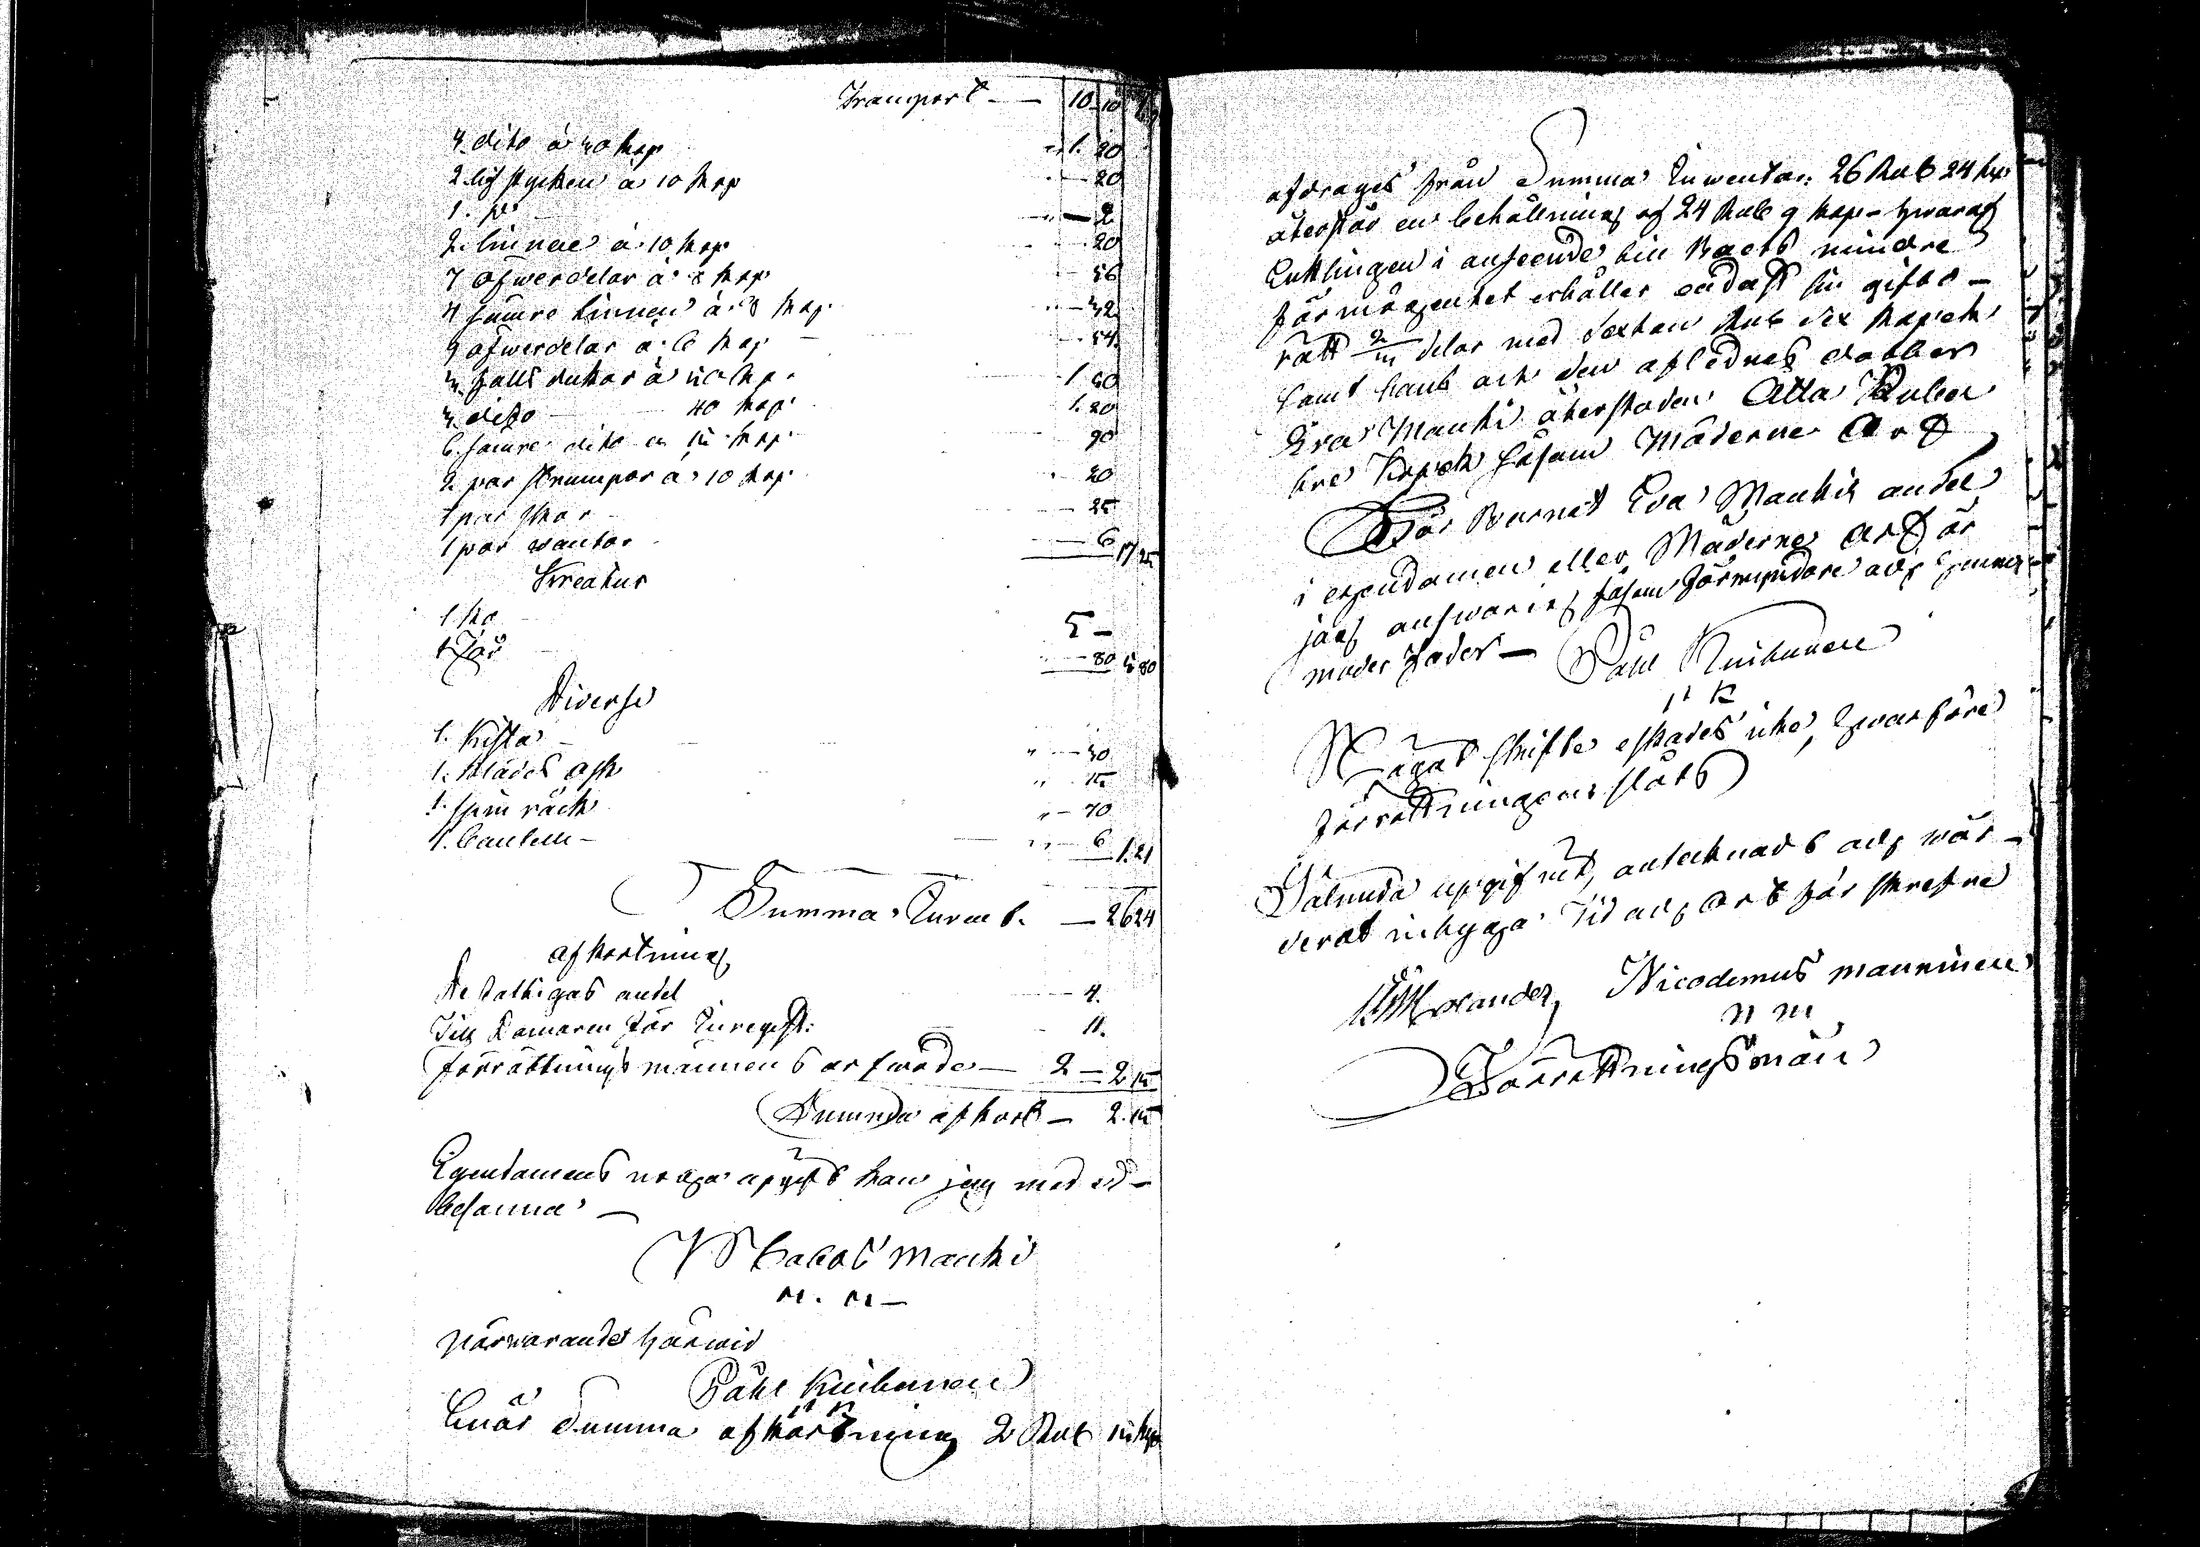 Transport — 10 10
4 dito à 40 kop 1. 20
2 lifstycken à 10 kop — 20
1. — 2
2. linnen à 10 kop — 20
7 öfwerdelar à 8 kop — 56
4 sämre linnen à 8 kop — 32
9 öfwerdelar à 6 kop — 54
4 halsdukar à kop. 1. 80
4. dito — 40 kop. 1. 20
6. sämre dito à 15 kop. 90
2. par strumpor à 10 kop. 20
1 par skor — 25
1 par vantar — 6
Kreatur
1 Ko 5 —
1 Får — 80 5 80
Diverse
1. Kista — 30
1. Klädes ask 15
1. spin råck — 70
1. — 6 1.21
Summa Invent. — 26 24
afkortning
De fattigas andel — 4.
Till Domaren för Inregist: 11.
förrättnings männens arfwode — 2 — 2 15
Summa afkort — 2. 15
Egendomens noga upgift kan jag med ed —
besanna —
Jakob Mauki
m. m —
närwarande härwid
Påhl Kuikunen
När Summa afkortning 2 Rub 15 kop
afdrages från Summa Inventar. 26 Rub 24 kop
återstår en behållning af 24 Rub 9 kop — hwaraf
Enklingen i anseende till Boets mindre
förmögenhet erhåller endast sin gifto —
rätt 2/3 delar med Sexton Rub sex kopek
samt barn och den aflednes dotter
Eva Mauki återstoden Åtta Rubel
tre Kopek såsom Möderne Arf
För Barnet Eva Maukis andel
i egendomen eller Möderne Arf är
jag answarig såsom Förmyndare och
moder fader — Påhl Kuikunen
P K
Något skifte eskades icke, hwarföre
Förrättningen slöts
Sålunda upgifwet, antecknadt och wär —
derat intyga Tid och Ort för skrefne
Nicodemus Manninen
N M
Förrättningsmän